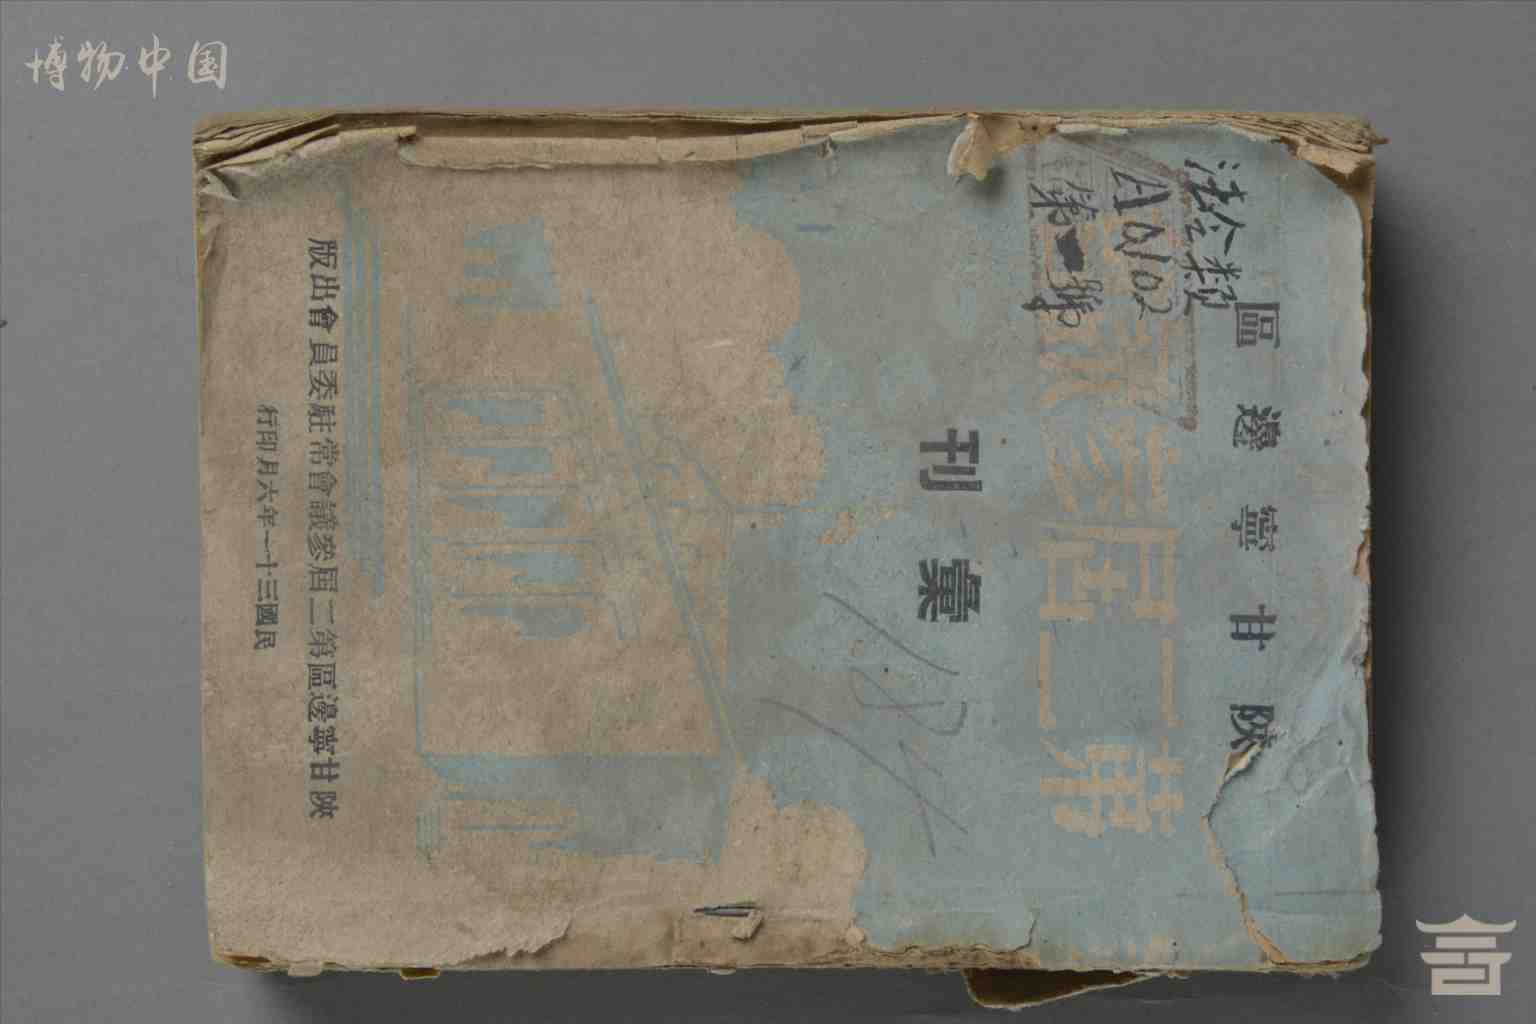 博物中国
法令類
第一號
陝甘寧邊區
第二屆參議會
彙刊
陝甘寧邊區第二屆參議會常駐委員會出版
民國三十一年六月印行